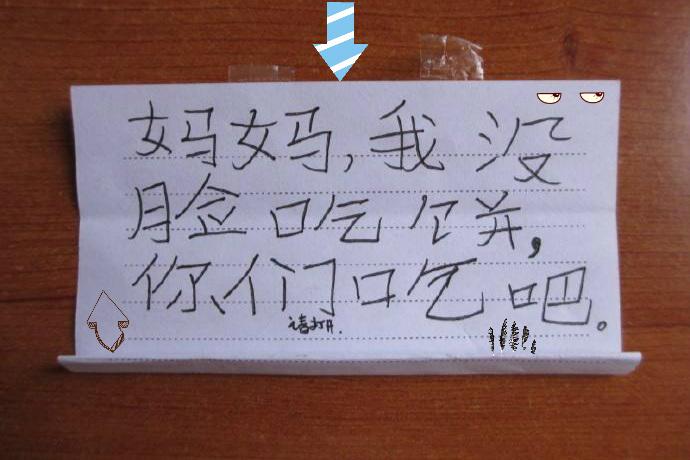 妈妈,我没
脸吃饼,
你们吃吧。
请打开.